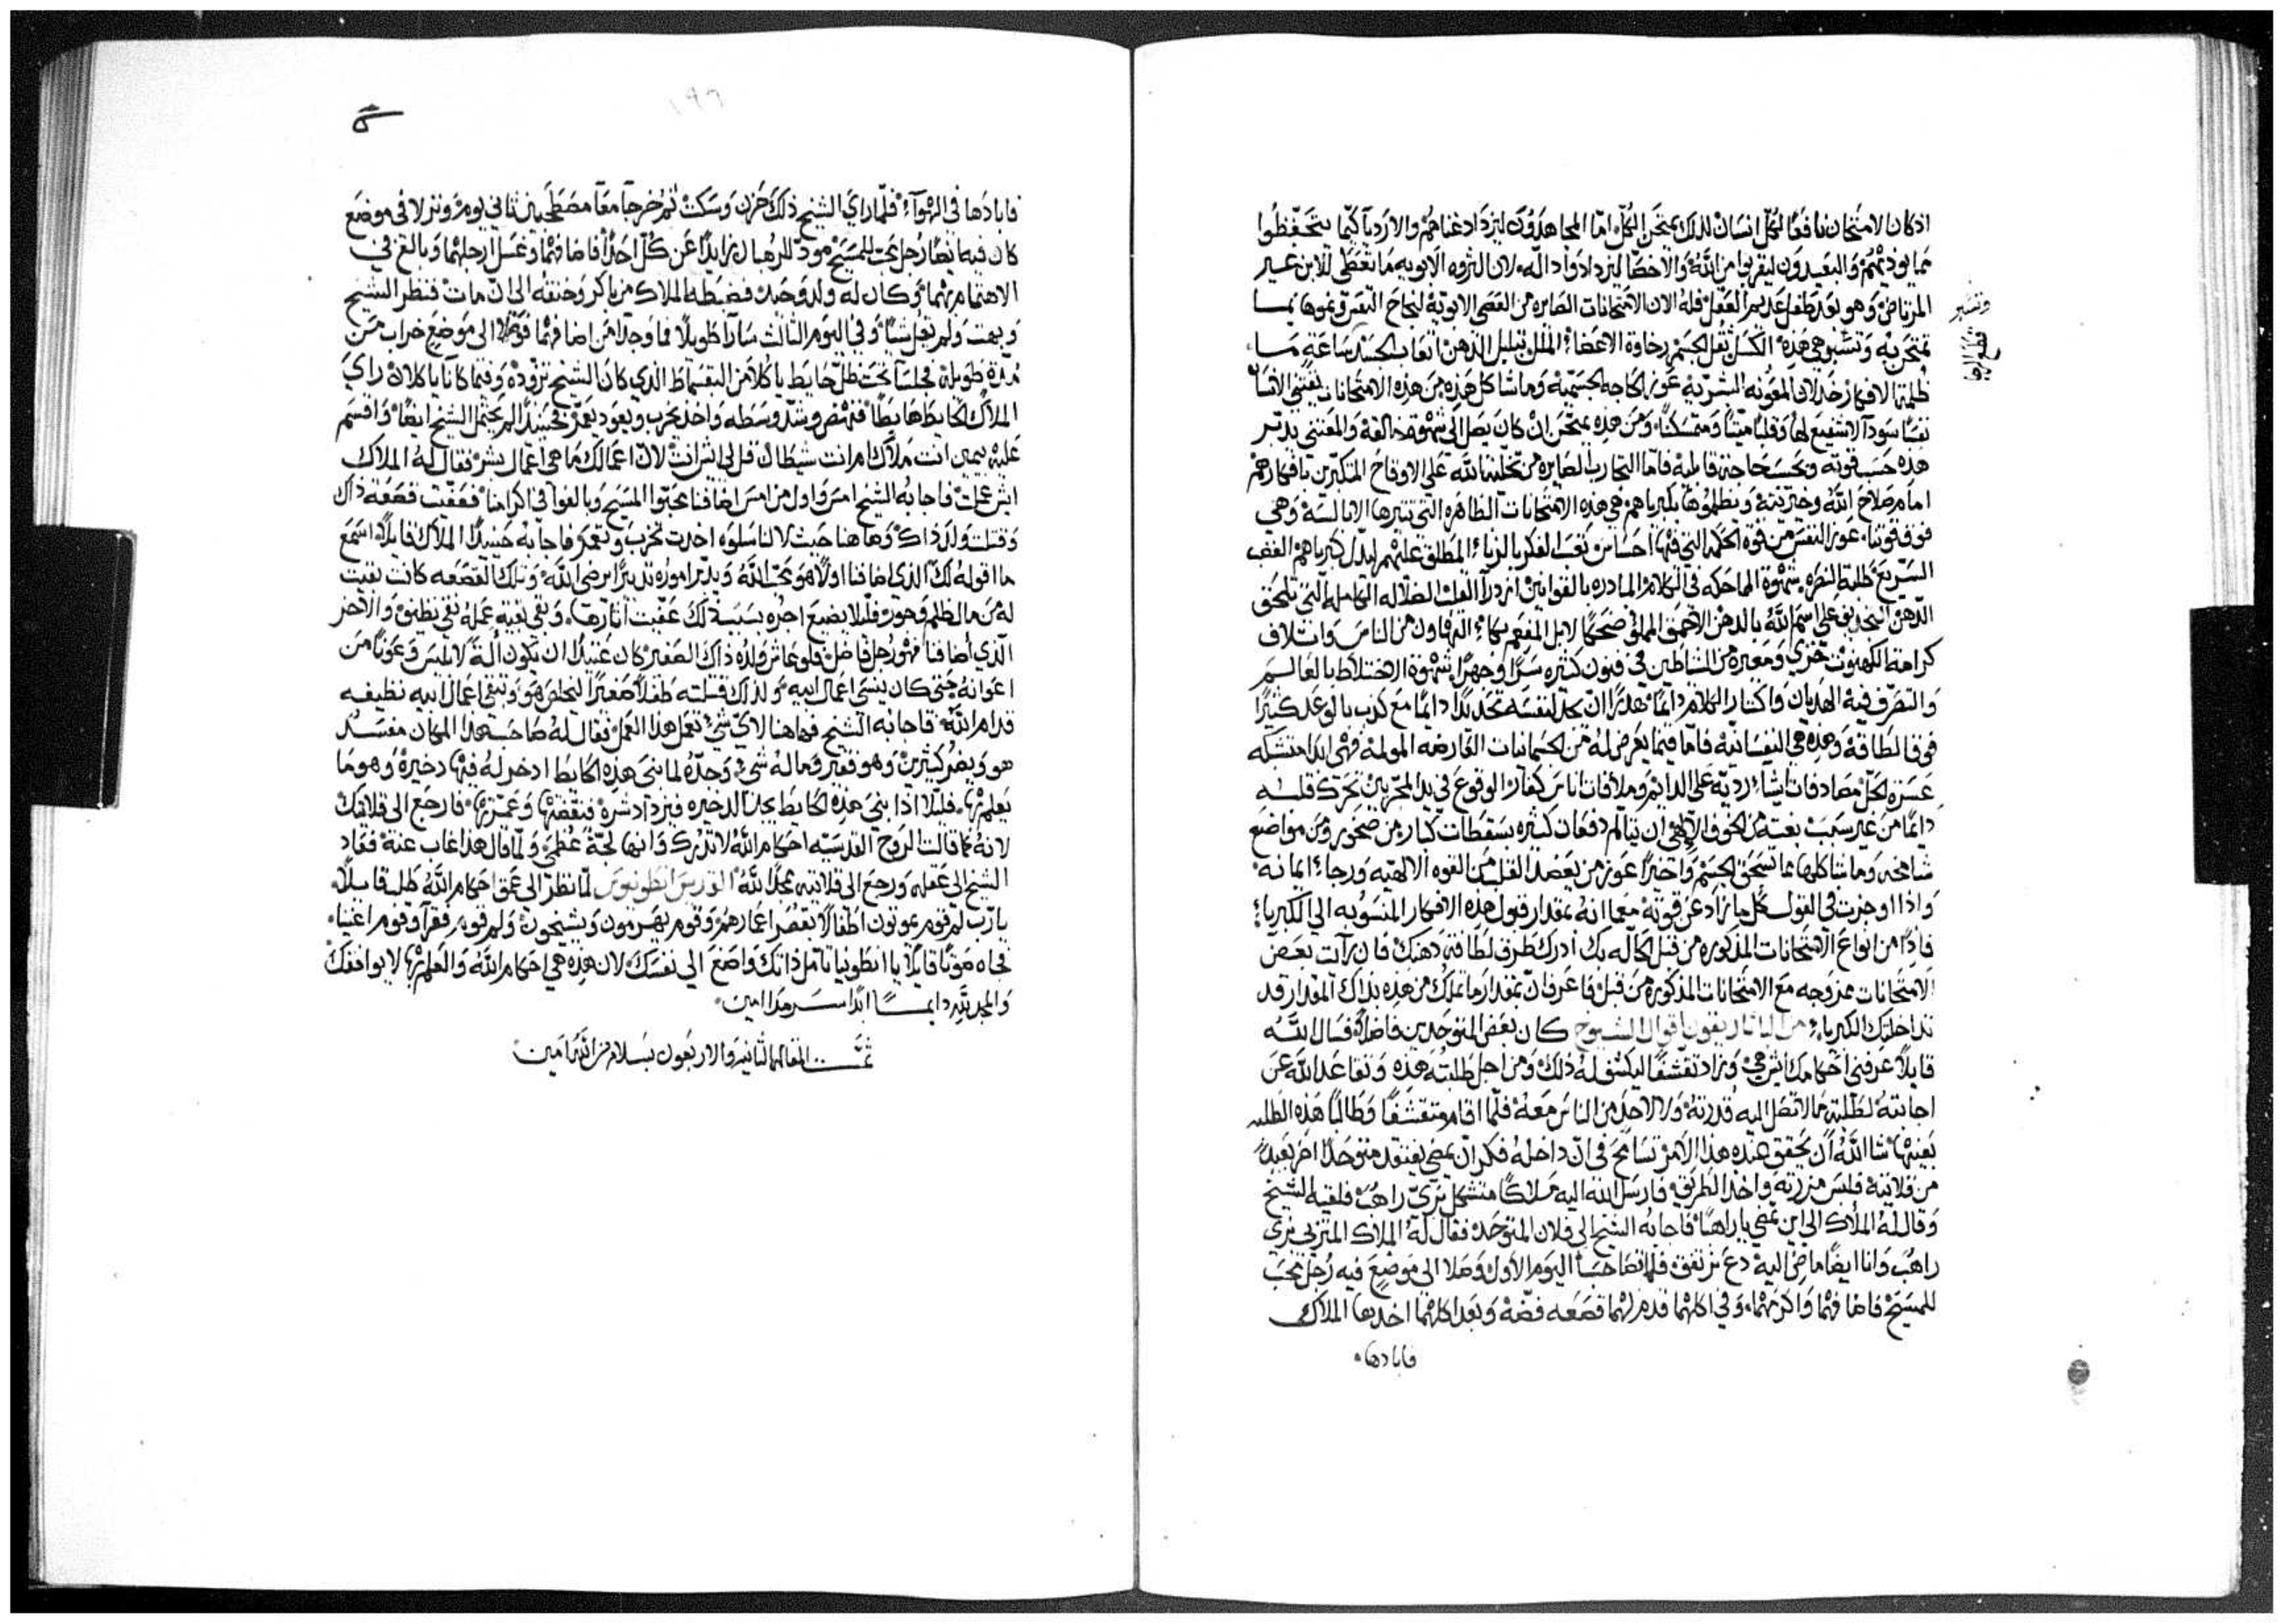 اذ كان الامتحان نافعًا لكل انسان لذلك يمتحن الكل، اما المجاهدون ليزداد غناهم والاردياء كيما يتحفظوا
مما يوذيهم والبعيدون ليقربوا من الله والاخصا ليزدادوا داله، لان الثروه الابويه ما تعطى للابن غير
المرتاض وهو بعد طفل عديم العقل فله الان الامتحانات الصايره من العصى الابوية لنجاح النفس ونموها بما
تمتحن به وتنشبو هي هذه الكسل ثقل الجسم رخاوة الاعضاء الملل تبلبل الذهن اتعاب الجسد ساعة ما
ظلمة الافكار خذلان المعونه البشرية عوز الحاجه الجسمية وما شاكل هذه من هذه الامتحانات يقتني الانسان
نفسًا سودآ لا شفيع لها وقلبًا ميتًا ومتمسكنًا ومن هذه يمتحن ان كان يصل الى شهوة خالقه والمعتني يدبر
هذه حسب قوته وبحسب حاجته قابليه فاما التجارب الصايره من تخلية الله على الاوقاح المتكبرين بافكارهم
امام صلاح الله وخيريته ويظلموها بكبرياهم هي هذه الامتحانات الظاهره التي تثيرها الابالسة وهي
فوق قوتنا، عوز النفس من قوة الحكمه التي فيها احساس نفسا لفكر بالزناء المطلق عليهم ليذل كبرياهم الغضب
السريع طلبة النصره شهوة المماحكه في الكلام المبادره بالقوانين ازدراء القلب الضلاله الكامله التي تلحق
الذهن التجديف على اسم الله بالذهن الاحمق المملو ضحكًا لابل المفعم بكاء التهاون من الناس واتلاف
كراهة الكهنوت خزي ومعيره من الشياطين في فنون كثيره سرًا وجهرًا شهوة الاختلاط بالعالم
والتصرف فيه الهذيان واكثار الكلام دايمًا هذرًا ان يجد لنفسه تجديدًا دايمًا مع كذب بالوعد كثيرًا
فوق الطاقة وهذه هي النفسانية فاما فيما يعرض له من الجسمانيات القارضه المولمة فهي ابدا متشبكه
عسرة الحل مصادفات اشياء ردية على الدايم وملاقات اناس كفار الوقوع في يد المجربين تحرك قلبه
دايمًا من غير سبب بغتة من الخوف الالهي ان يتالم دفعات كثيره بسقطات كبار من صخور ومن مواضع
شامخه وما شاكلها مما تسحق الجسم واخيرًا عوز من يعضد القلب من القوه الالهيه ورجاء ايمانه
واذا اوجزت في القول كل ما زاد عن قوتة معما انه بمقدار قبول هذه الافكار المنسوبه الى الكبرياء
فاذًا من انواع الامتحانات المذكوره من قبل الحاله بك ادرك طرف لطافة ذهنك فان رآيت بعض
الامتحانات ممزوجه مع الامتحانات المذكوره من قبل فاعرف ان بمقدار ما نملك من هذه بذاك المقدار قد
تداخلتك الكبرياء، من اقوال الشيوخ كان بعض المتوحدين فاضلًا فسال الله
قايلًا عرفني احكامك ايش هي وزاد تقشفًا ليكشف له ذلك ومن اجل طلبته هذه وتقاعد الله عن
اجابته لطلبته ما لا تصل اليه قدرتة ولا لاحد من الناس معه فلما اقام متقشفًا وطالبًا هذه الطلبه
بعينها شا الله ان يحقق عنده هذا الامر تسامح في ان داخله فكر ان يمضي يفتقد متوحدًا اخر بعيدًا
من قلايته فلبس مزرته واخذ الطريق فارسل الله اليه ملاكًا متشكل بزي راهب فلقيه الشيخ
وقال له الملاك الى اين تمضي يا راهبًا فاجابه الشيخ الى فلان المتوحد فقال له الملاك المتزيي بزي
راهب وانا ايضًا ماضي اليه دع نرتفق فلما تصاحبا اليوم الاول وصلا الى موضع فيه رجل محب
للمسيح فاضافهما واكرمهما، وفي اكلهما قدم لهما قصعه فضه وبعد اكلهما اخدها الملاك
فابادها
وتفسير
قطع الرجا
١٩٦
فابادها في الهوآء فلما راى الشيخ ذلك حزن وسكت ثم خرجا معآ مصطحبين ثاني يوم ونزلا في موضع
كان فيه ايضًا رجل محب للمسيح مود للرهبان زايدًا عن كل احدًا فاضافهما وغسل ارجلهما وبالغ في
الاهتمام بهما وكان له ولد وحيد فضبطه الملاك من باكر وخنقه الى ان مات فنظر الشيخ
وبهت ولم يقل شيًا وفي اليوم الثالث سارا طويلًا فما وجدا من اضافهما فوصلا الى موضع خراب من
مدة طويلة فجلسا تحت ظل حايط ياكلا من البقسماط الذي كان الشيخ تزوده وفيما كانا ياكلان راى
الملاك الحايط هابطًا فنهض وشد وسطه واخذ يخرب ويعود يعمر فحينيذًا لم يحتمل الشيخ ايضًا واقسم
عليه بيمين انت ملاك ام انت شيطان قل لي ايش انت لان اعمالك ما هي اعمال بشر فقال له الملاك
ايش عملت فاجابه الشيخ امس واول من امس اضافنا محبوا المسيح وبالغوا في اكرامنا فعفيت قصعة ذاك
وقتلت ولد ذاك وهاهنا حيث لا لنا سلوه اخذت تخرب وتعمر فاجابه حينيذًا الملاك قايلًا اسمع
ما اقوله لك الذي اضافنا اولًا هو محب الله ويدبر اموره تدبيرًا يرضى الله وتلك القصعه كانت بقيت
له من مال ظلم وجور فليلا يضيع اجره بسبب ذلك عفيت اثارها، وبقى بقية عمله نقي نظيف والاخر
الذي اضافنا فهو رجل فاضل فلو عاش ولده ذاك الصغير كان عتيدًا ان يكون آلة لابليس وعونًا من
اعوانه حتى كان ينسى اعمال ابيه ولذلك قتلته طفلًا صغيرًا ليخلص هو وتبقى اعمال ابيه نظيفه
قدام الله فاجابه الشيخ فهاهنا لاي شي تعمل هذا العمل فقال له صاحب هذا المكان مفسد
هو ويضر كثيرين وهو فقير وما له شي وجده لما بنى هذه الحايط ادخر له فيها دخيرة وهو ما
يعلم بها، فليلا اذا بنى هذه الحايط يجد الدخيره فيزداد شره فنقضتها وعمرتها فارجع الى قلايتك
لانه كما قالت الروح القدسيه احكام الله لا تدرك وانها لجة عظمى ولما قال هذا غاب عنه فعاد
الشيخ الى عقله ورجع الى قلايته ممجدًا لله القديس انطونيوس لما نظر الى عمق احكام الله طلب قايلًا
يا رب لم قوم يموتون اطفالًا بقصر اعمارهم وقوم يهرمون ويشيخون ولم قوم فقرآ وقوم اغنيا،
فجاه صوتًا قايلًا يا انطونيا تامل ذاتك واصغ الى نفسك لان هذه هي احكام الله والعلم بها لا يوافقك
والمجد لله دايمًا ابدًا سرمدا امين
تمت المقاله الثانيه والاربعون بسلام من الله امين